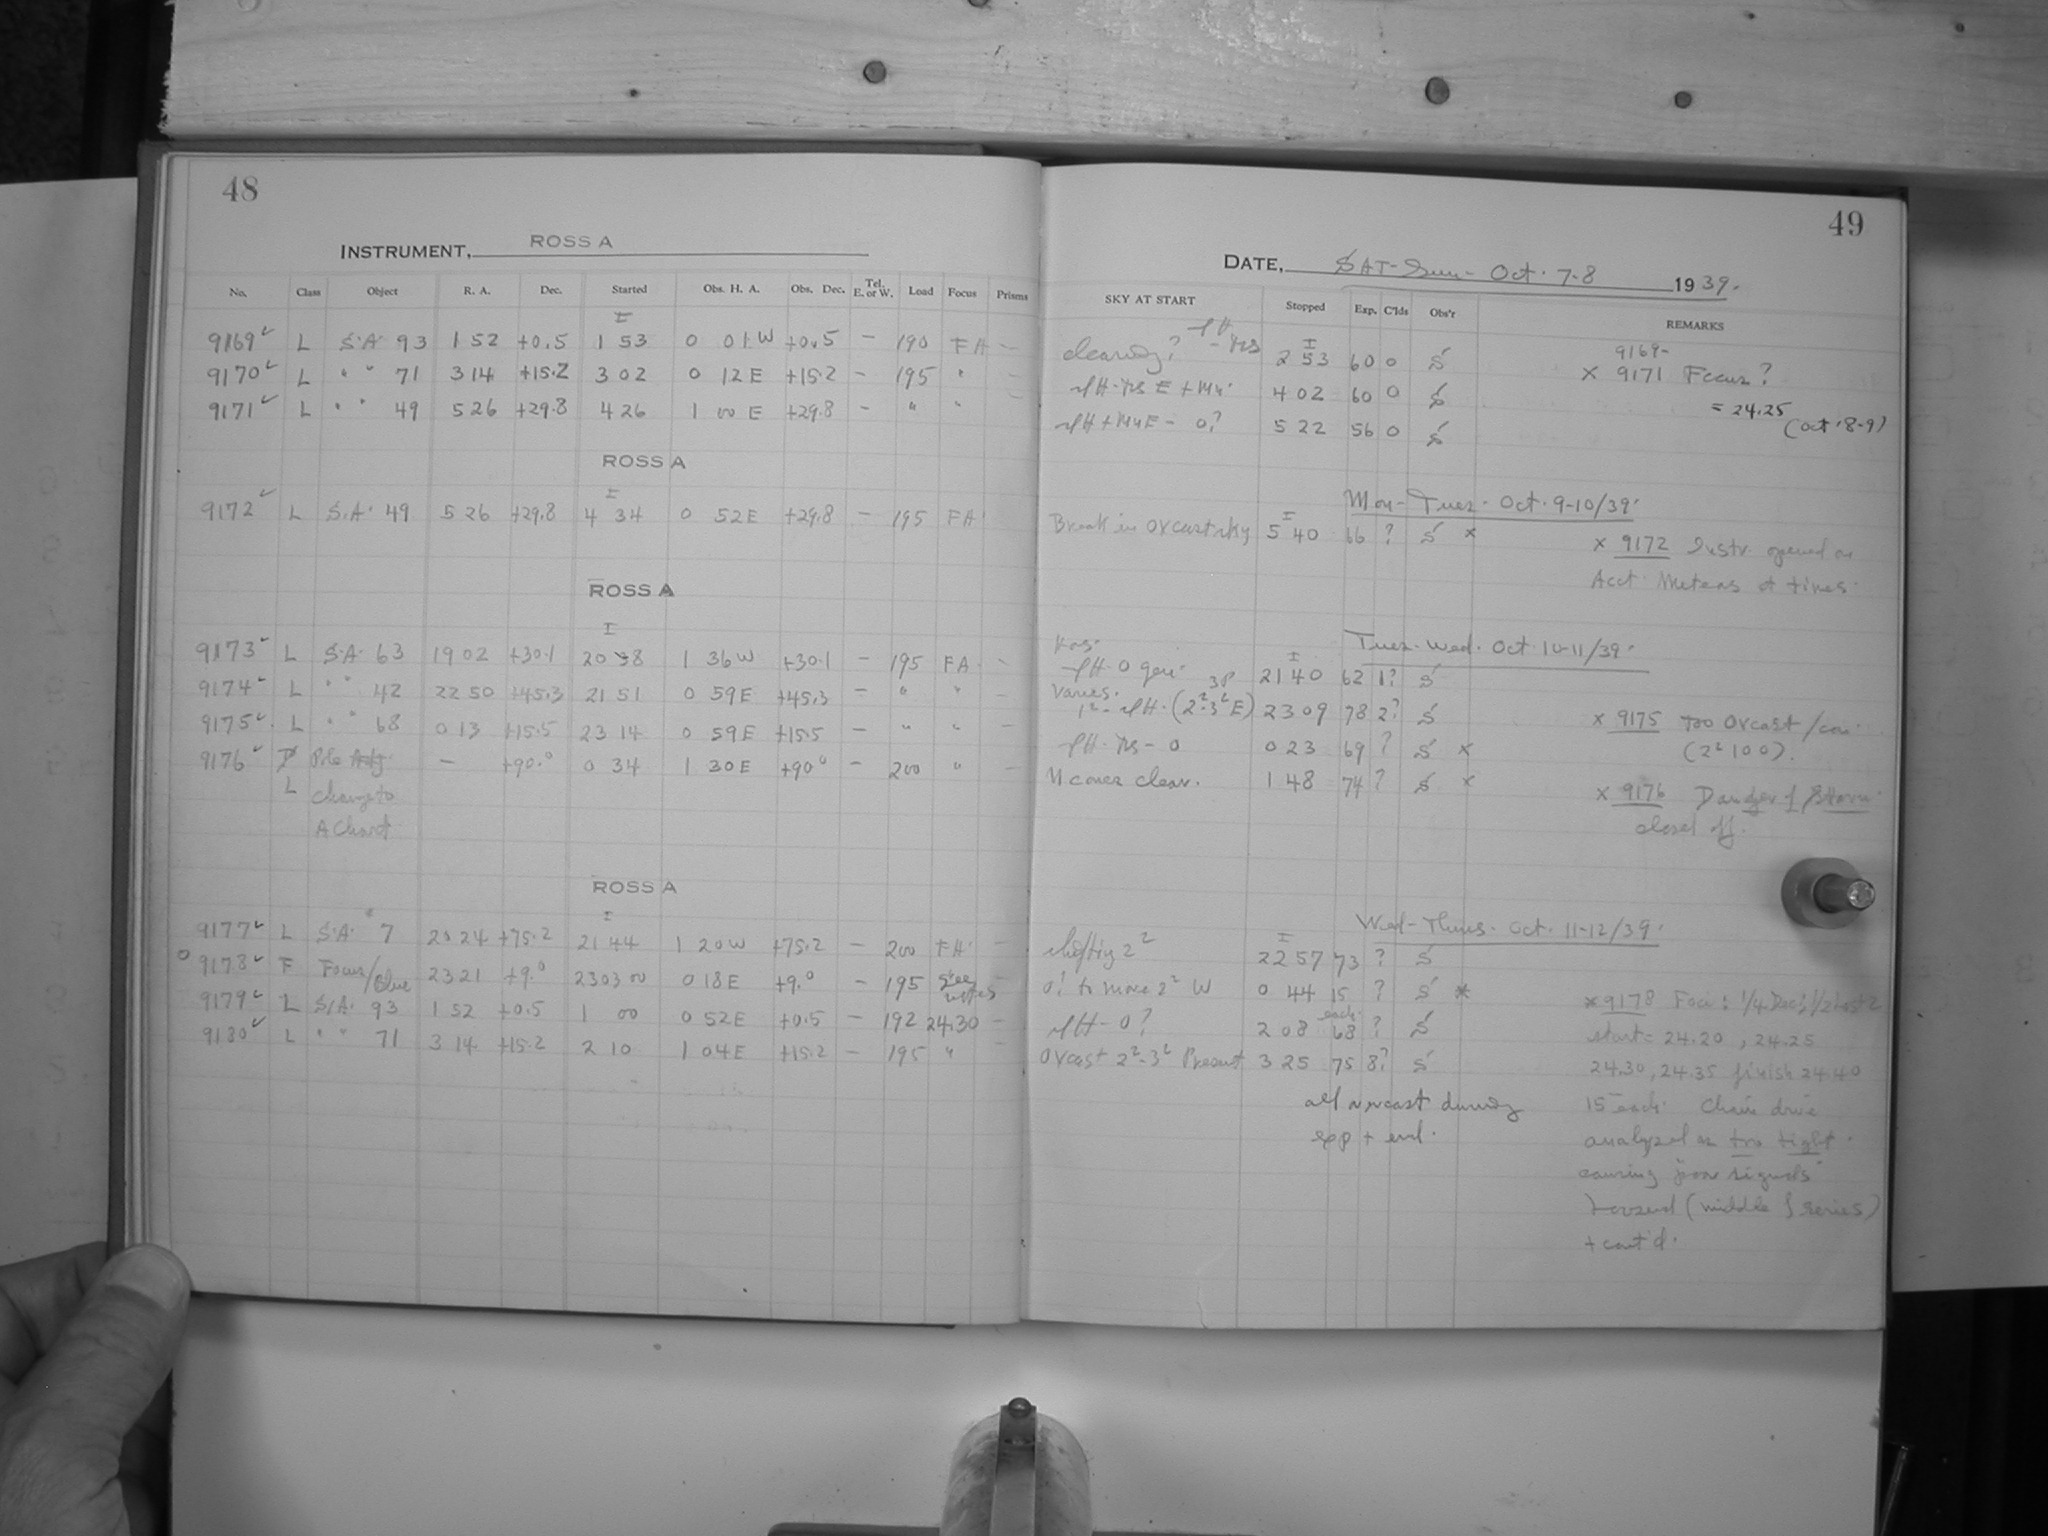 48
INSTRUMENT, ROSS A
No. Class Object R. A. Dec. Started Obs. H. A. Obs. Dec. Tel. E. or W. Load Focus Prisms
9169 L S.A. 93 1 52 +0.5 1 53 0 01 W +0.5 – 190 FA –
9170 L " " 71 3 14 +15.2 3 02 0 12 E +15.2 – 195 " –
9171 L " " 49 5 26 +29.8 4 26 1 00 E +29.8 – " "
ROSS A
9172 L S.A. 49 5 26 +29.8 4 34 0 52 E +29.8 – 195 FA
ROSS A
9173 L S.A. 63 19 02 +30.1 20 38 1 36 W +30.1 – 195 FA –
9174 L " " 42 22 50 +45.3 21 51 0 59 E +45.3 – " " –
9175 L " " 68 0 13 +15.5 23 14 0 59 E +15.5 – " " –
9176 Pole Adj. – +90.° 0 34 1 30 E +90° – 200 " –
L Change to
A Chart
ROSS A
9177 L S.A. 7 20 24 +75.2 21 44 1 20 W +75.2 – 200 FA –
9178 F Focus/Blue 23 21 +9.° 23 03 00 0 18 E +9.° – 195 See notes –
9179 L S.A. 93 1 52 +0.5 1 00 0 52 E +0.5 – 192 24.30 –
9180 L " " 71 3 14 +15.2 2 10 1 04 E +15.2 – 195 " –
49
DATE, SAT-Sun- Oct. 7-8 1939.
SKY AT START Stopped Exp. C'lds Obs'r REMARKS
clearing? 2 53 60 0 S
9169-
x 9171 Focus?
4 02 60 0 S
= 24.25
(Oct. 8-9)
5 22 56 0 S
Mon- Tues. Oct. 9-10/39.
Break in Ovcast sky 5 40 66 ? S x
x 9172 Instr. opened on
Acct. Meteors at times.
Tues-Wed. Oct. 10-11/39.
21 40 62 1? S
Varies.
1²- (2²-3² E) 23 09 78 2? S
x 9175 too Ovcast
(2² 100).
0 23 69 ? S x
N comes clear. 1 48 74 ? S x
x 9176 Danger of Storm
closed off.
Wed-Thurs. Oct. 11-12/39.
shifting 2² 22 57 73 ? S
0! to more 2² W 0 44 15 each ? S *
* 9178 Foci: 1/4 Dec; 1/2 last 2
0? 2 08 68 ? S
start = 24.20, 24.25
Ovcast 2²-3² Present 3 25 75 8? S
24.30, 24.35 finish 24.40
all ovcast during
exp + end.
15 each. Chain drive
analyzed as too tight.
causing poor signals
Loosened (middle of series)
+ cont'd.